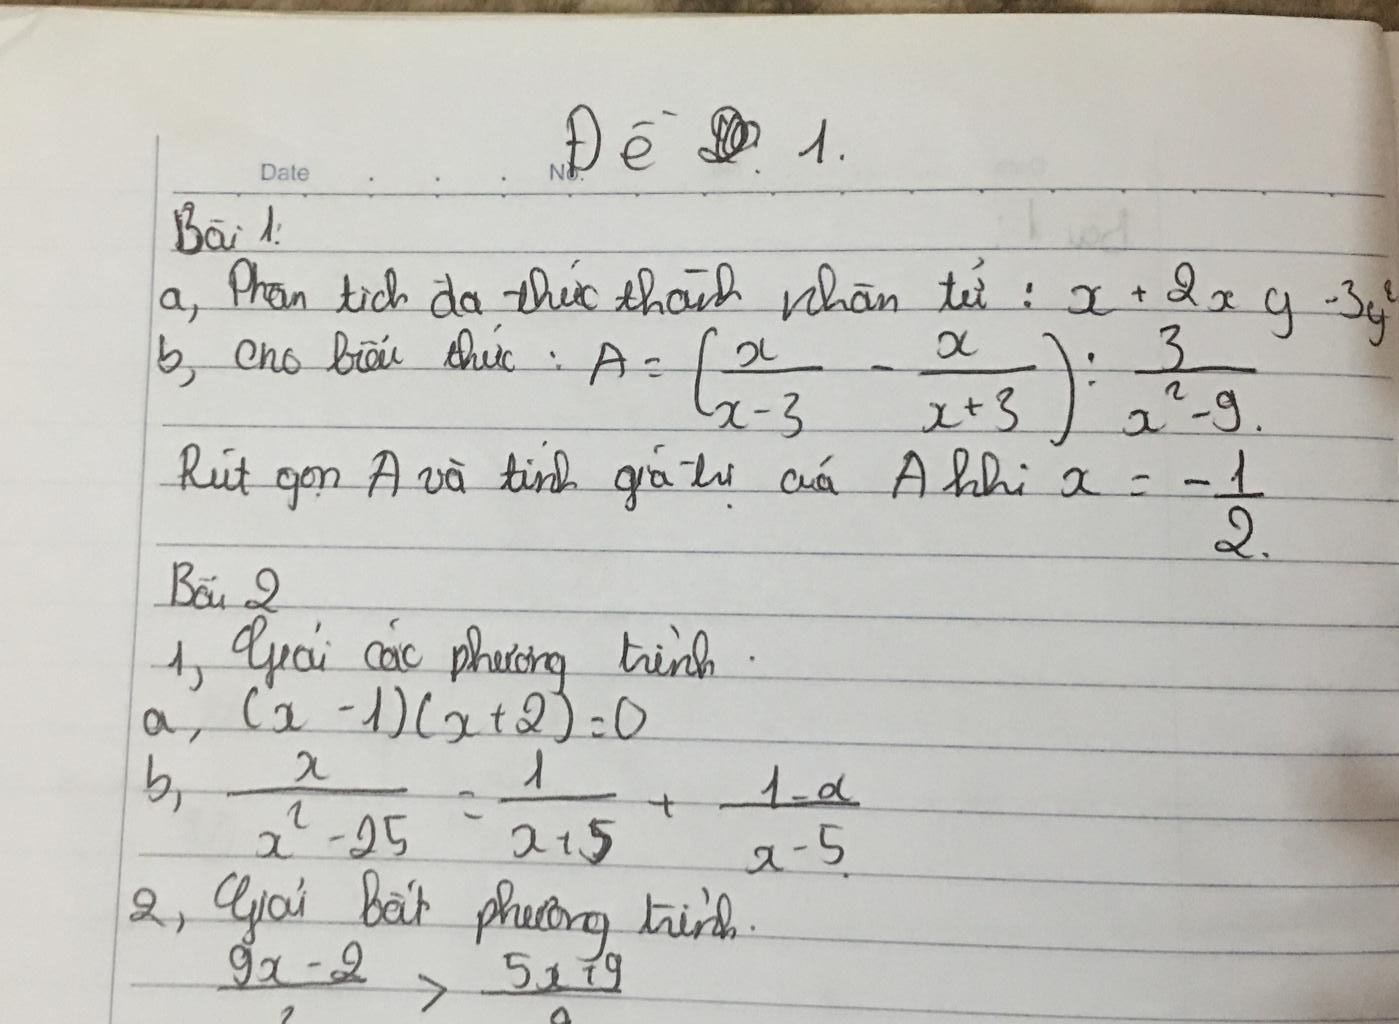 Đề 1.
Date No.
Bài 1:
a, Phân tích đa thức thành nhân tử : x + 2xy - 3y²
b, Cho biểu thức : A = (x/(x-3) - x/(x+3)) : 3/(x²-9).
Rút gọn A và tính giá trị của A khi x = -1/2.
Bài 2
1, Giải các phương trình.
a, (x - 1)(x + 2) = 0
b, x/(x²-25) = 1/(x+5) + (1-x)/(x-5).
2, Giải bất phương trình.
9x - 2 > 5x + 9